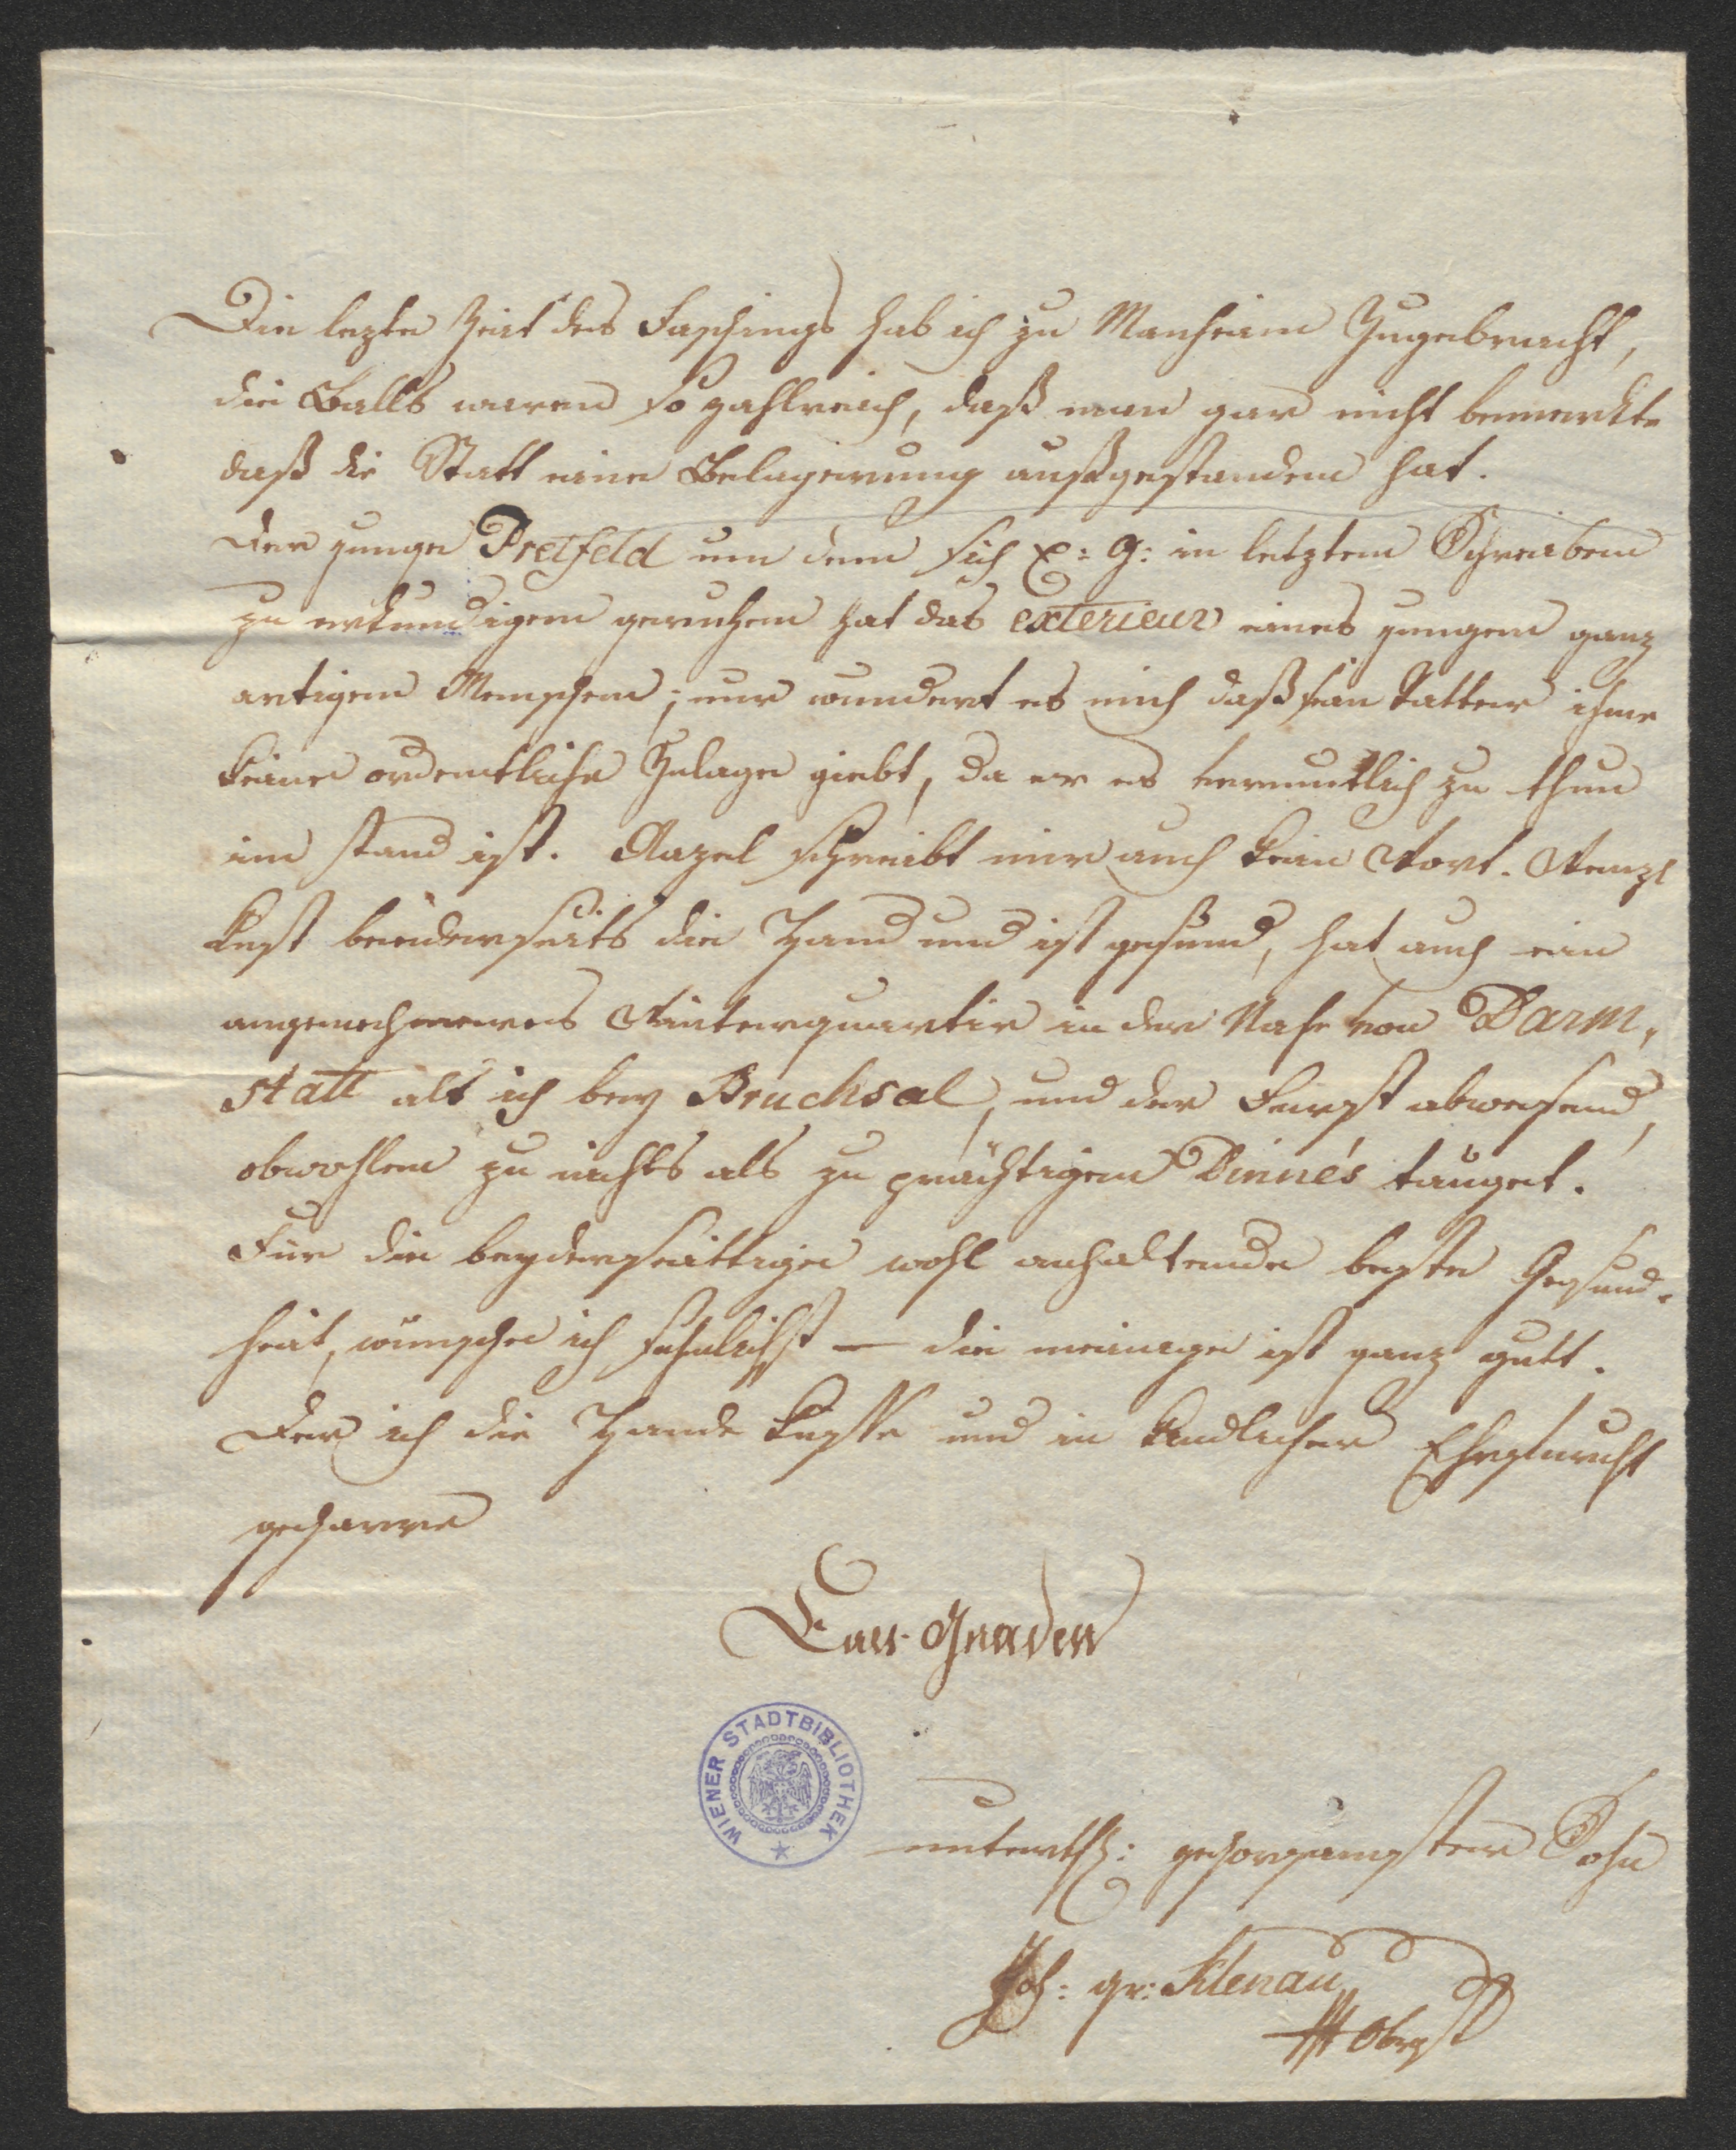 Die lezte Zeit des Faschings hab ich zu Manheim Zugebracht,
die Balls waren so zahlreich, daß man gar nicht bemerckte
daß die Statt eine Belagerung außgestanden hat.
Der junge Pretfeld um dem sich E: G: in letztem Schreiben
zu erkundigen geruhen hat das exterieur eines jungen ganz
artigen Menschen; nur wundert es mich daß sein Vatter ihme
keine ordentliche Zulage giebt, da er es vermutlich zu thun
im stand ist. schreibt mir auch kein Wort. Wenzl
küst beederseits die Hand und ist gesund, hat auch ein
angenehmeres Winterquartir in der Nahe von Darm,
statt alß ich bey Bruchsal, und der Fürst abwesend,
obwohlen zu nichts als zu prächtigen Dinnés tauget.
Für die beyderseittige wohl anhaltende beste Gesund-
heit, wünsche ich sehnlichst — die meinige ist ganz gutt.
Der ich die Hande küsse und in kindlicher Ehrfurcht
geharre
Euer Gnaden
unterth: gehorsamster Sohn
Joh: gr: Klenau
Obrist
WIENER STADTBIBLIOTHEK